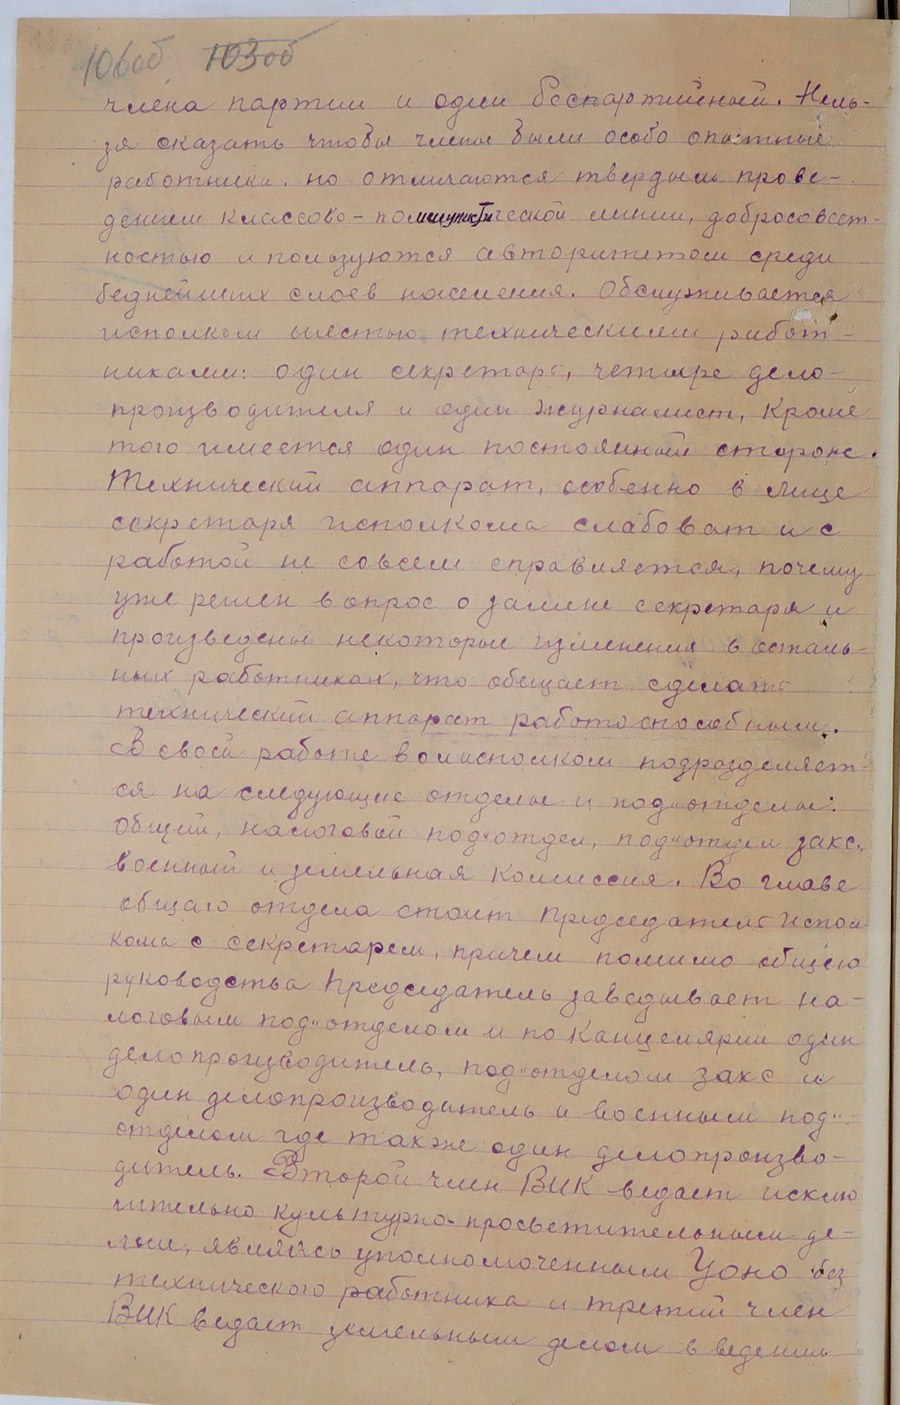 106об 103об
члена партии и один беспартийный. Нель-
зя сказать чтобы члены были особо опытные
работники, но отличаются твердым прове-
дением классово-политической линии, добросовест-
ностью и пользуются авторитетом среди
беднейших слоев населения. Обслуживается
исполком шестью техническими работ-
никами: один секретарь, четыре дело-
производителя и один журналист, кроме
того имеется один постоянный сторож.
Технический аппарат, особенно в лице
секретаря исполкома слабоват и с
работой не совсем справляется, почему
уже решен вопрос о замене секретаря и
произведены некоторые изменения в осталь-
ных работниках, что обещает сделать
технический аппарат работоспособным.
В своей работе волисполком подразделяет-
ся на следующие отделы и под"отделы:
Общий, налоговый под"отдел, под"отдел загс,
военный и земельная комиссия. Во главе
общаго отдела стоит председатель испол
кома с секретарем, причем помимо общего
руководства Председатель заведывает на-
логовым под"отделом и по канцелярии один
делопроизводитель, под"отделом загс и
один делопроизводитель и военным под"-
отделом где также один делопроизво-
дитель. Второй член ВИК ведает исклю
чительно культурно-просветительным де-
лом, являясь уполномоченным Уоно без
технического работника и третий член
ВИК ведает земельным делом в ведении